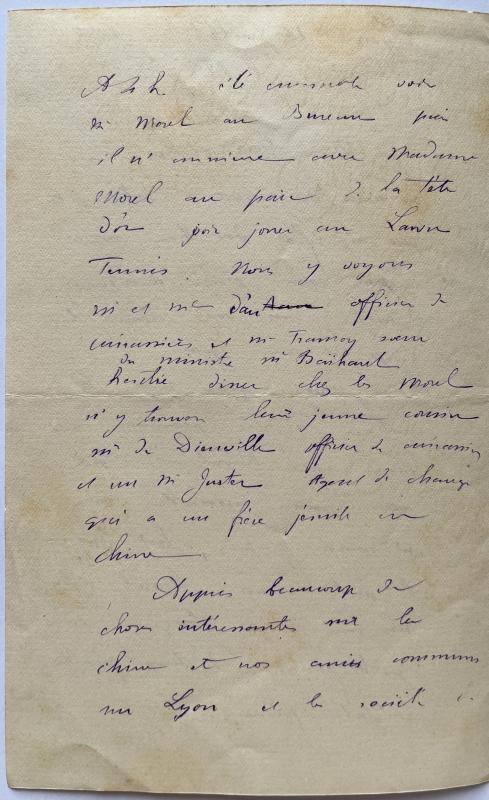 A 4 h. été ensemble voir
Mr Morel au Bureau puis
il m'emmene avec Madame
Morel au parc de la tête
d'or pour jouer au Lawn
Tennis. Nous y voyons
Mr et Me officier de
cuirassiers et Mr Tramoy sœur
du ministre Mr Baïhaut
Reste diner chez les Morel
n'y trouvons leur jeune cousin
Mr de Dienville officier de cuirassiers
et un Mr Juster Agent de change
qui a un frère jésuite en
Chine
Appris beaucoup de
choses intéressantes sur la
chine et nos amis communs
sur Lyon et la société